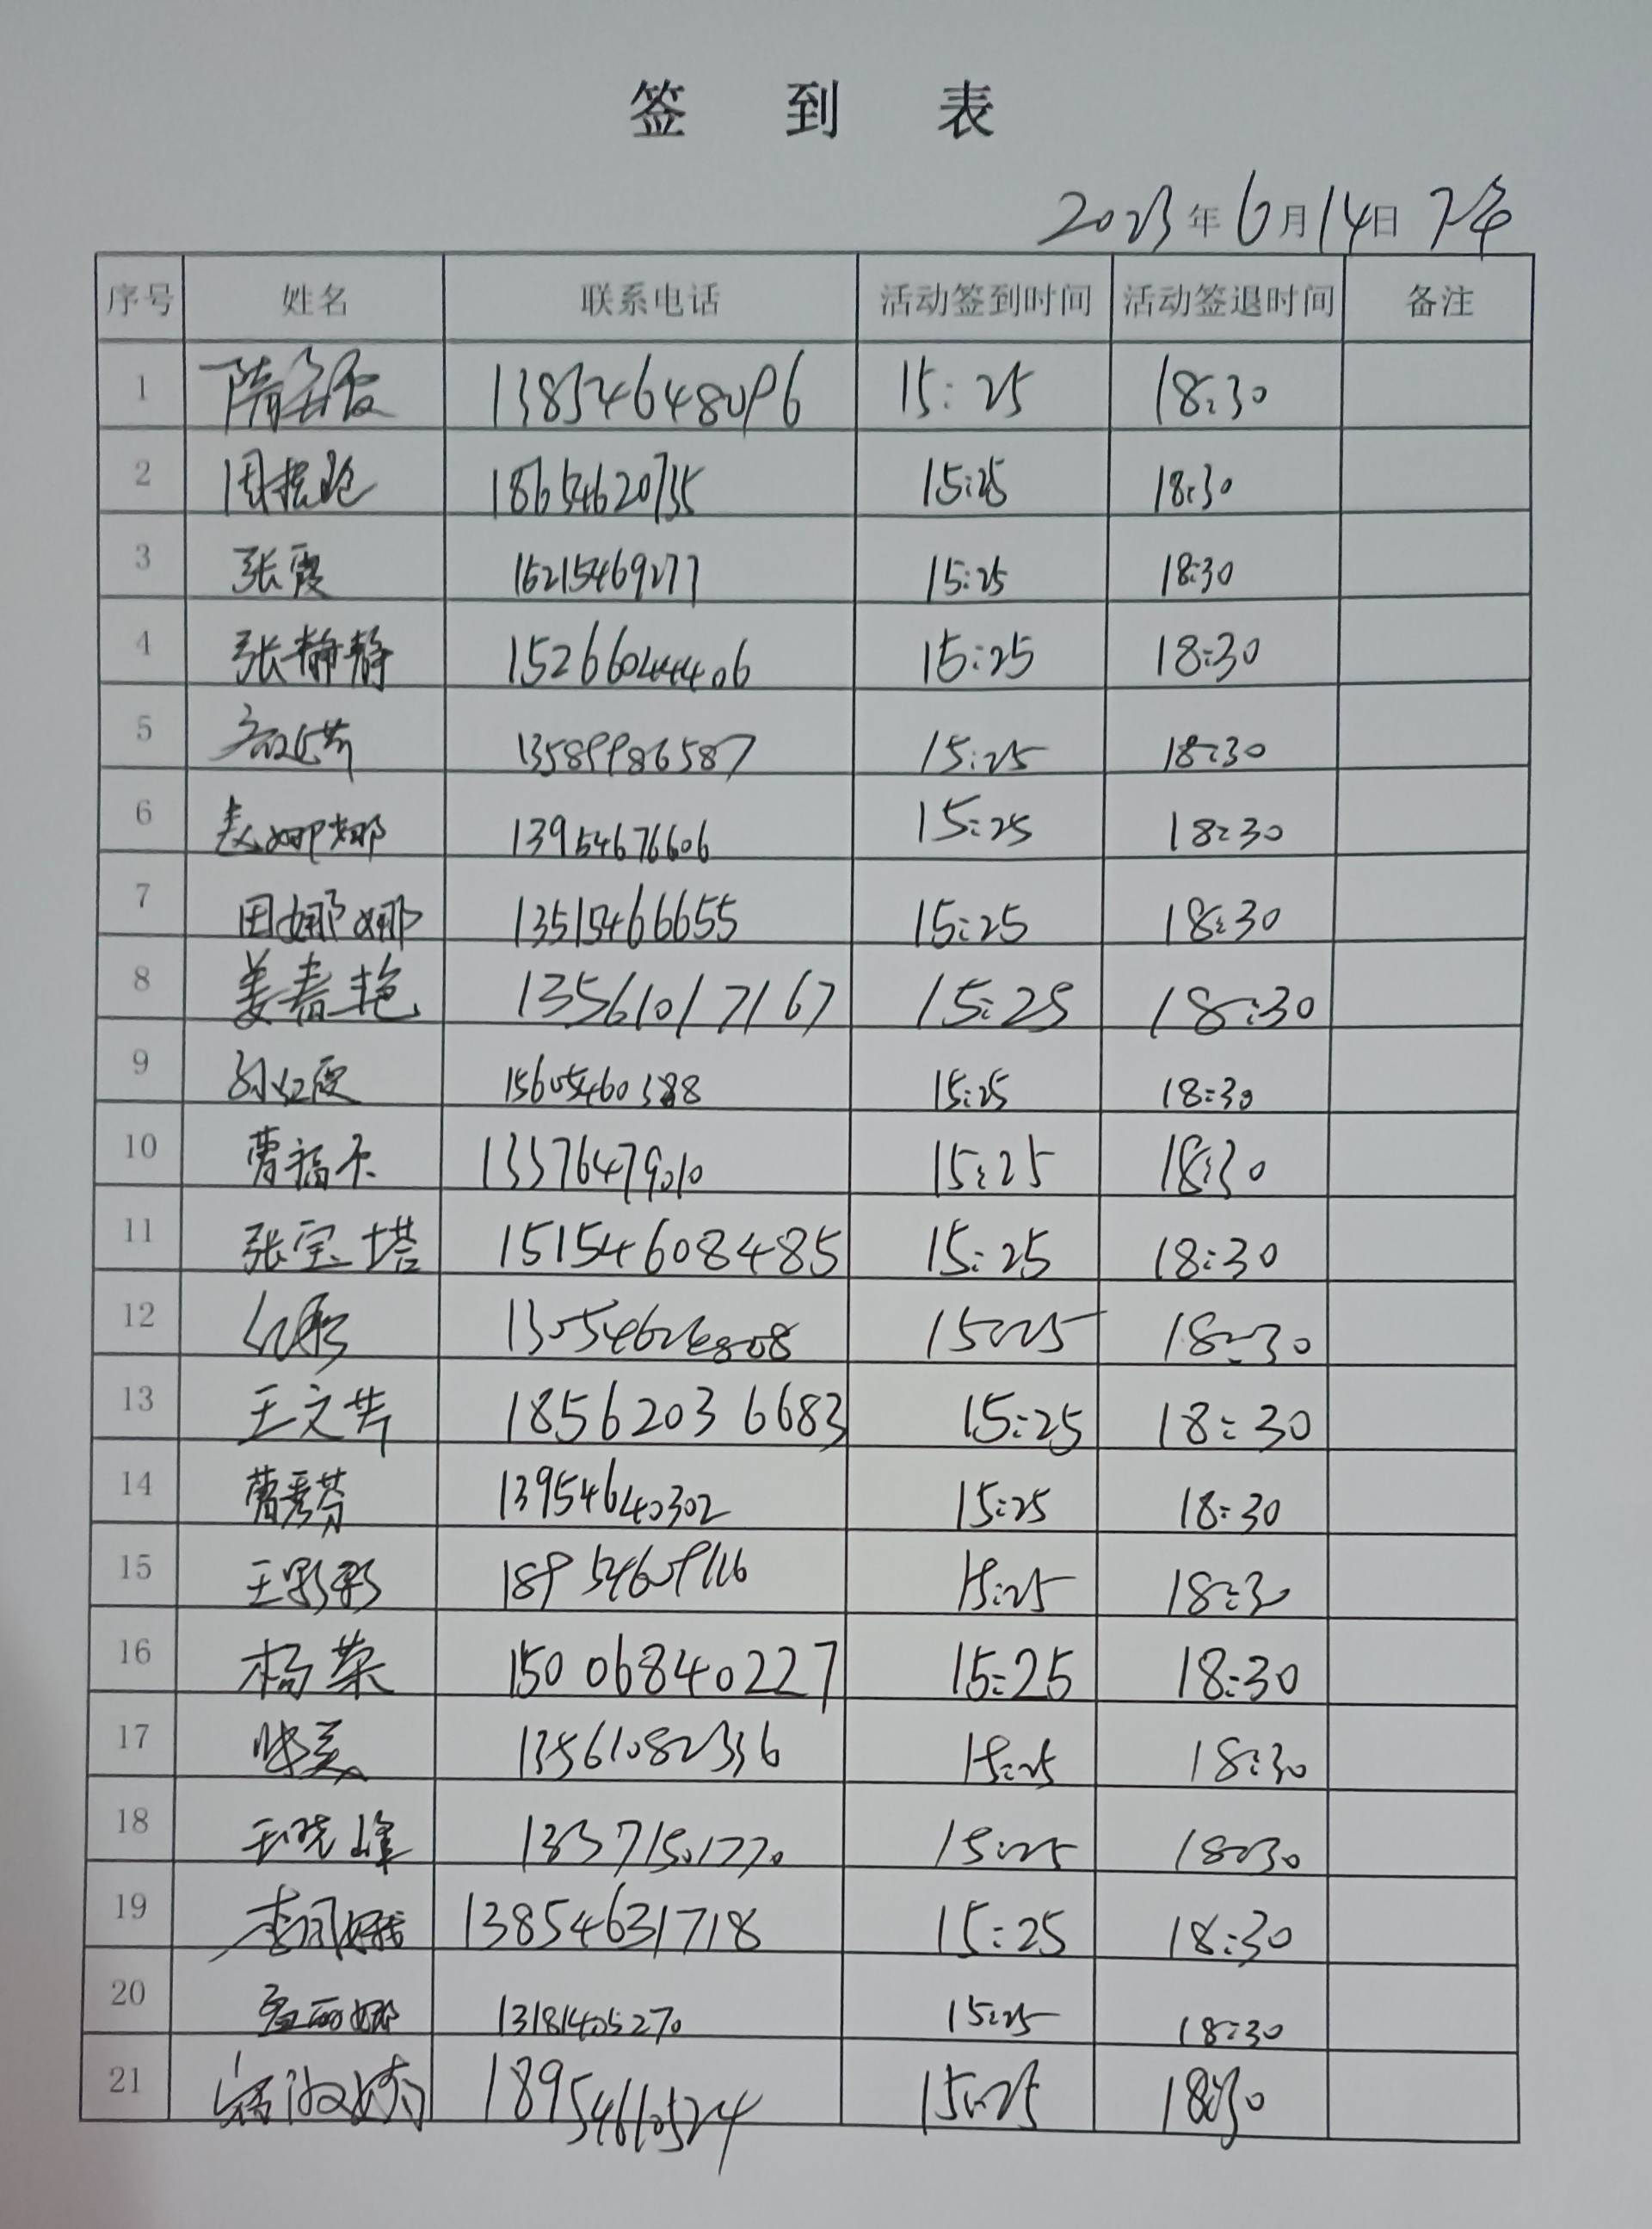 签 到 表
2023年6月14日 下午
序号 姓名 联系电话 活动签到时间 活动签退时间 备注
1 13854648096 15:25 18:30
2 18654620735 15:25 18:30
3 张霞 15215469277 15:25 18:30
4 张静静 15266024406 15:25 18:30
5 13589986587 15:25 18:30
6 娜娜 13954676606 15:25 18:30
7 田娜娜 13515466655 15:25 18:30
8 姜春艳 13561017167 15:25 18:30
9 孙红霞 15605460388 15:25 18:30
10 曹福 13376479010 15:25 18:30
11 张宝塔 15154608485 15:25 18:30
12 15:25 18:30
13 王文芹 18562036683 15:25 18:30
14 曹秀芬 13954640302 15:25 18:30
15 王彩彩 18954609116 15:25 18:30
16 杨荣 15006840227 15:25 18:30
17 13561082336 15:25 18:30
18 王晓峰 13371501770 15:25 18:30
19 李凤娥 13854631718 15:25 18:30
20 丽娜 13181405270 15:25 18:30
21 18954610524 15:25 18:30